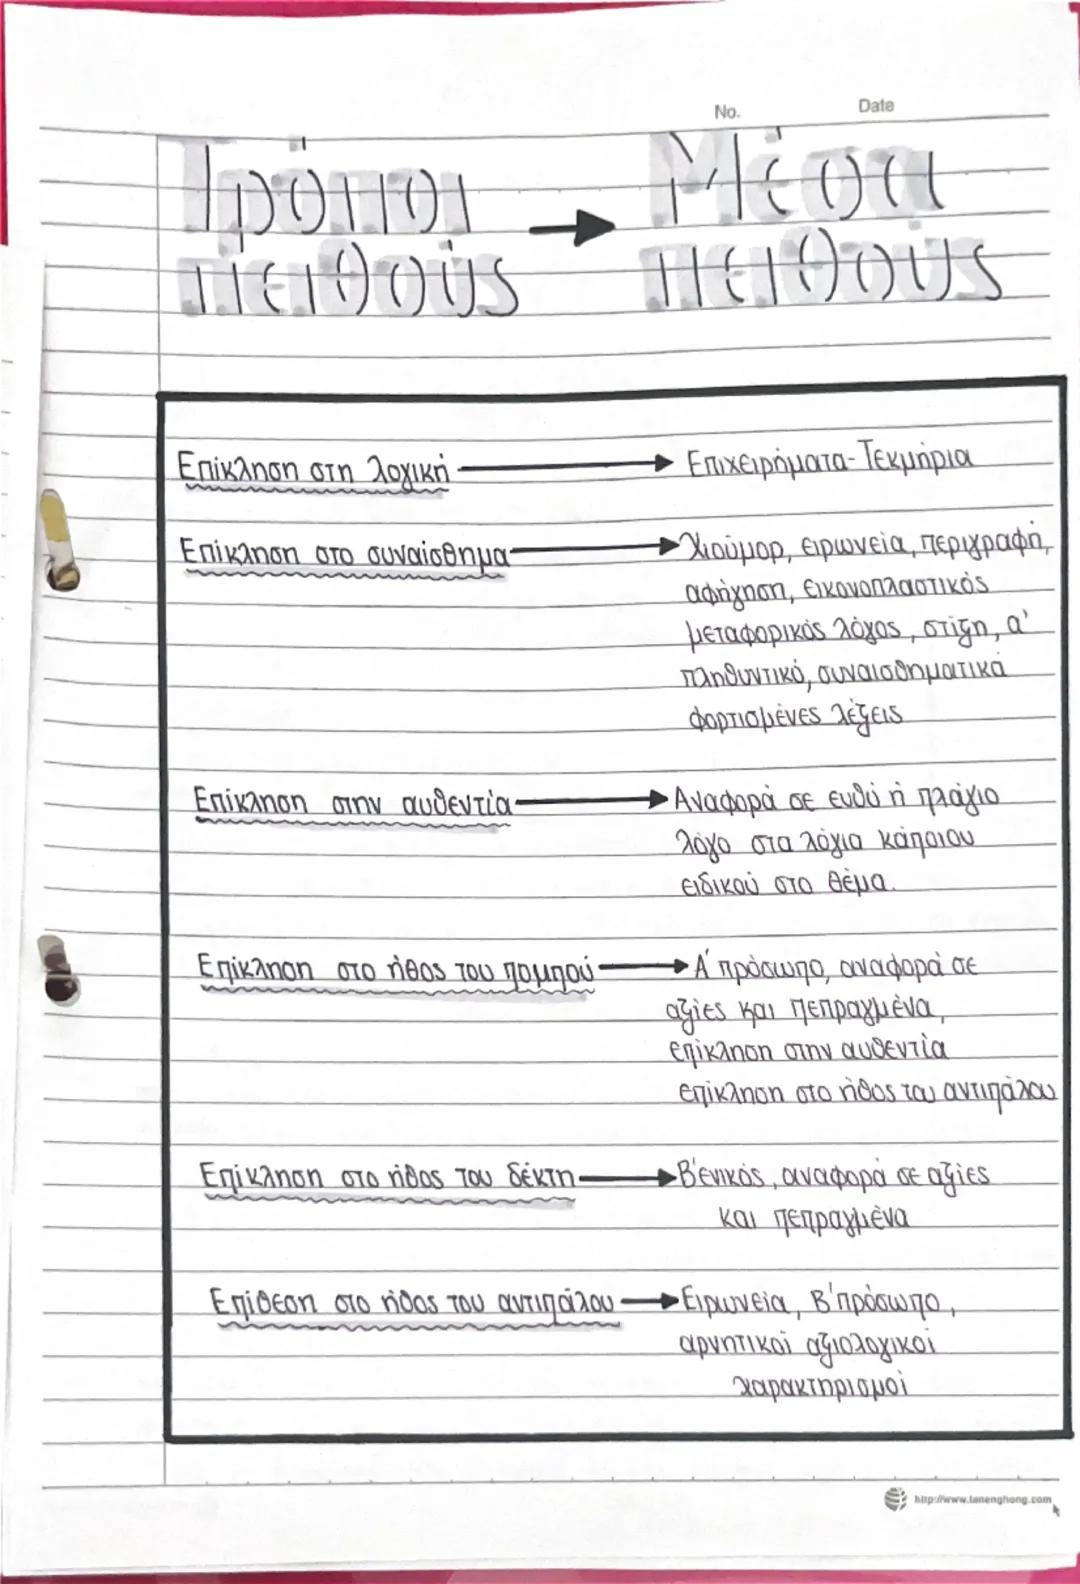 No. Date
Τρόποι πειθούς → Μέσα πειθούς
Επίκληση στη λογική → Επιχειρήματα-Τεκμήρια
Επίκληση στο συναίσθημα → Χιούμορ, ειρωνεία, περιγραφή,
αφήγηση, εικονοπλαστικός
μεταφορικός λόγος, στίξη, α'
πληθυντικό, συναισθηματικά
φορτισμένες λέξεις
Επίκληση στην αυθεντία → Αναφορά σε ευθύ ή πλάγιο
λόγο στα λόγια κάποιου
ειδικού στο θέμα.
Επίκληση στο ήθος του πομπού → Α' πρόσωπο, αναφορά σε
αξίες και πεπραγμένα,
επίκληση στην αυθεντία
επίκληση στο ήθος του αντιπάλου
Επίκληση στο ήθος του δέκτη → Β' ενικός, αναφορά σε αξίες
και πεπραγμένα
Επίθεση στο ήθος του αντιπάλου → Ειρωνεία, Β' πρόσωπο,
αρνητικοί αξιολογικοί
χαρακτηρισμοί
http://www.tanenghong.com